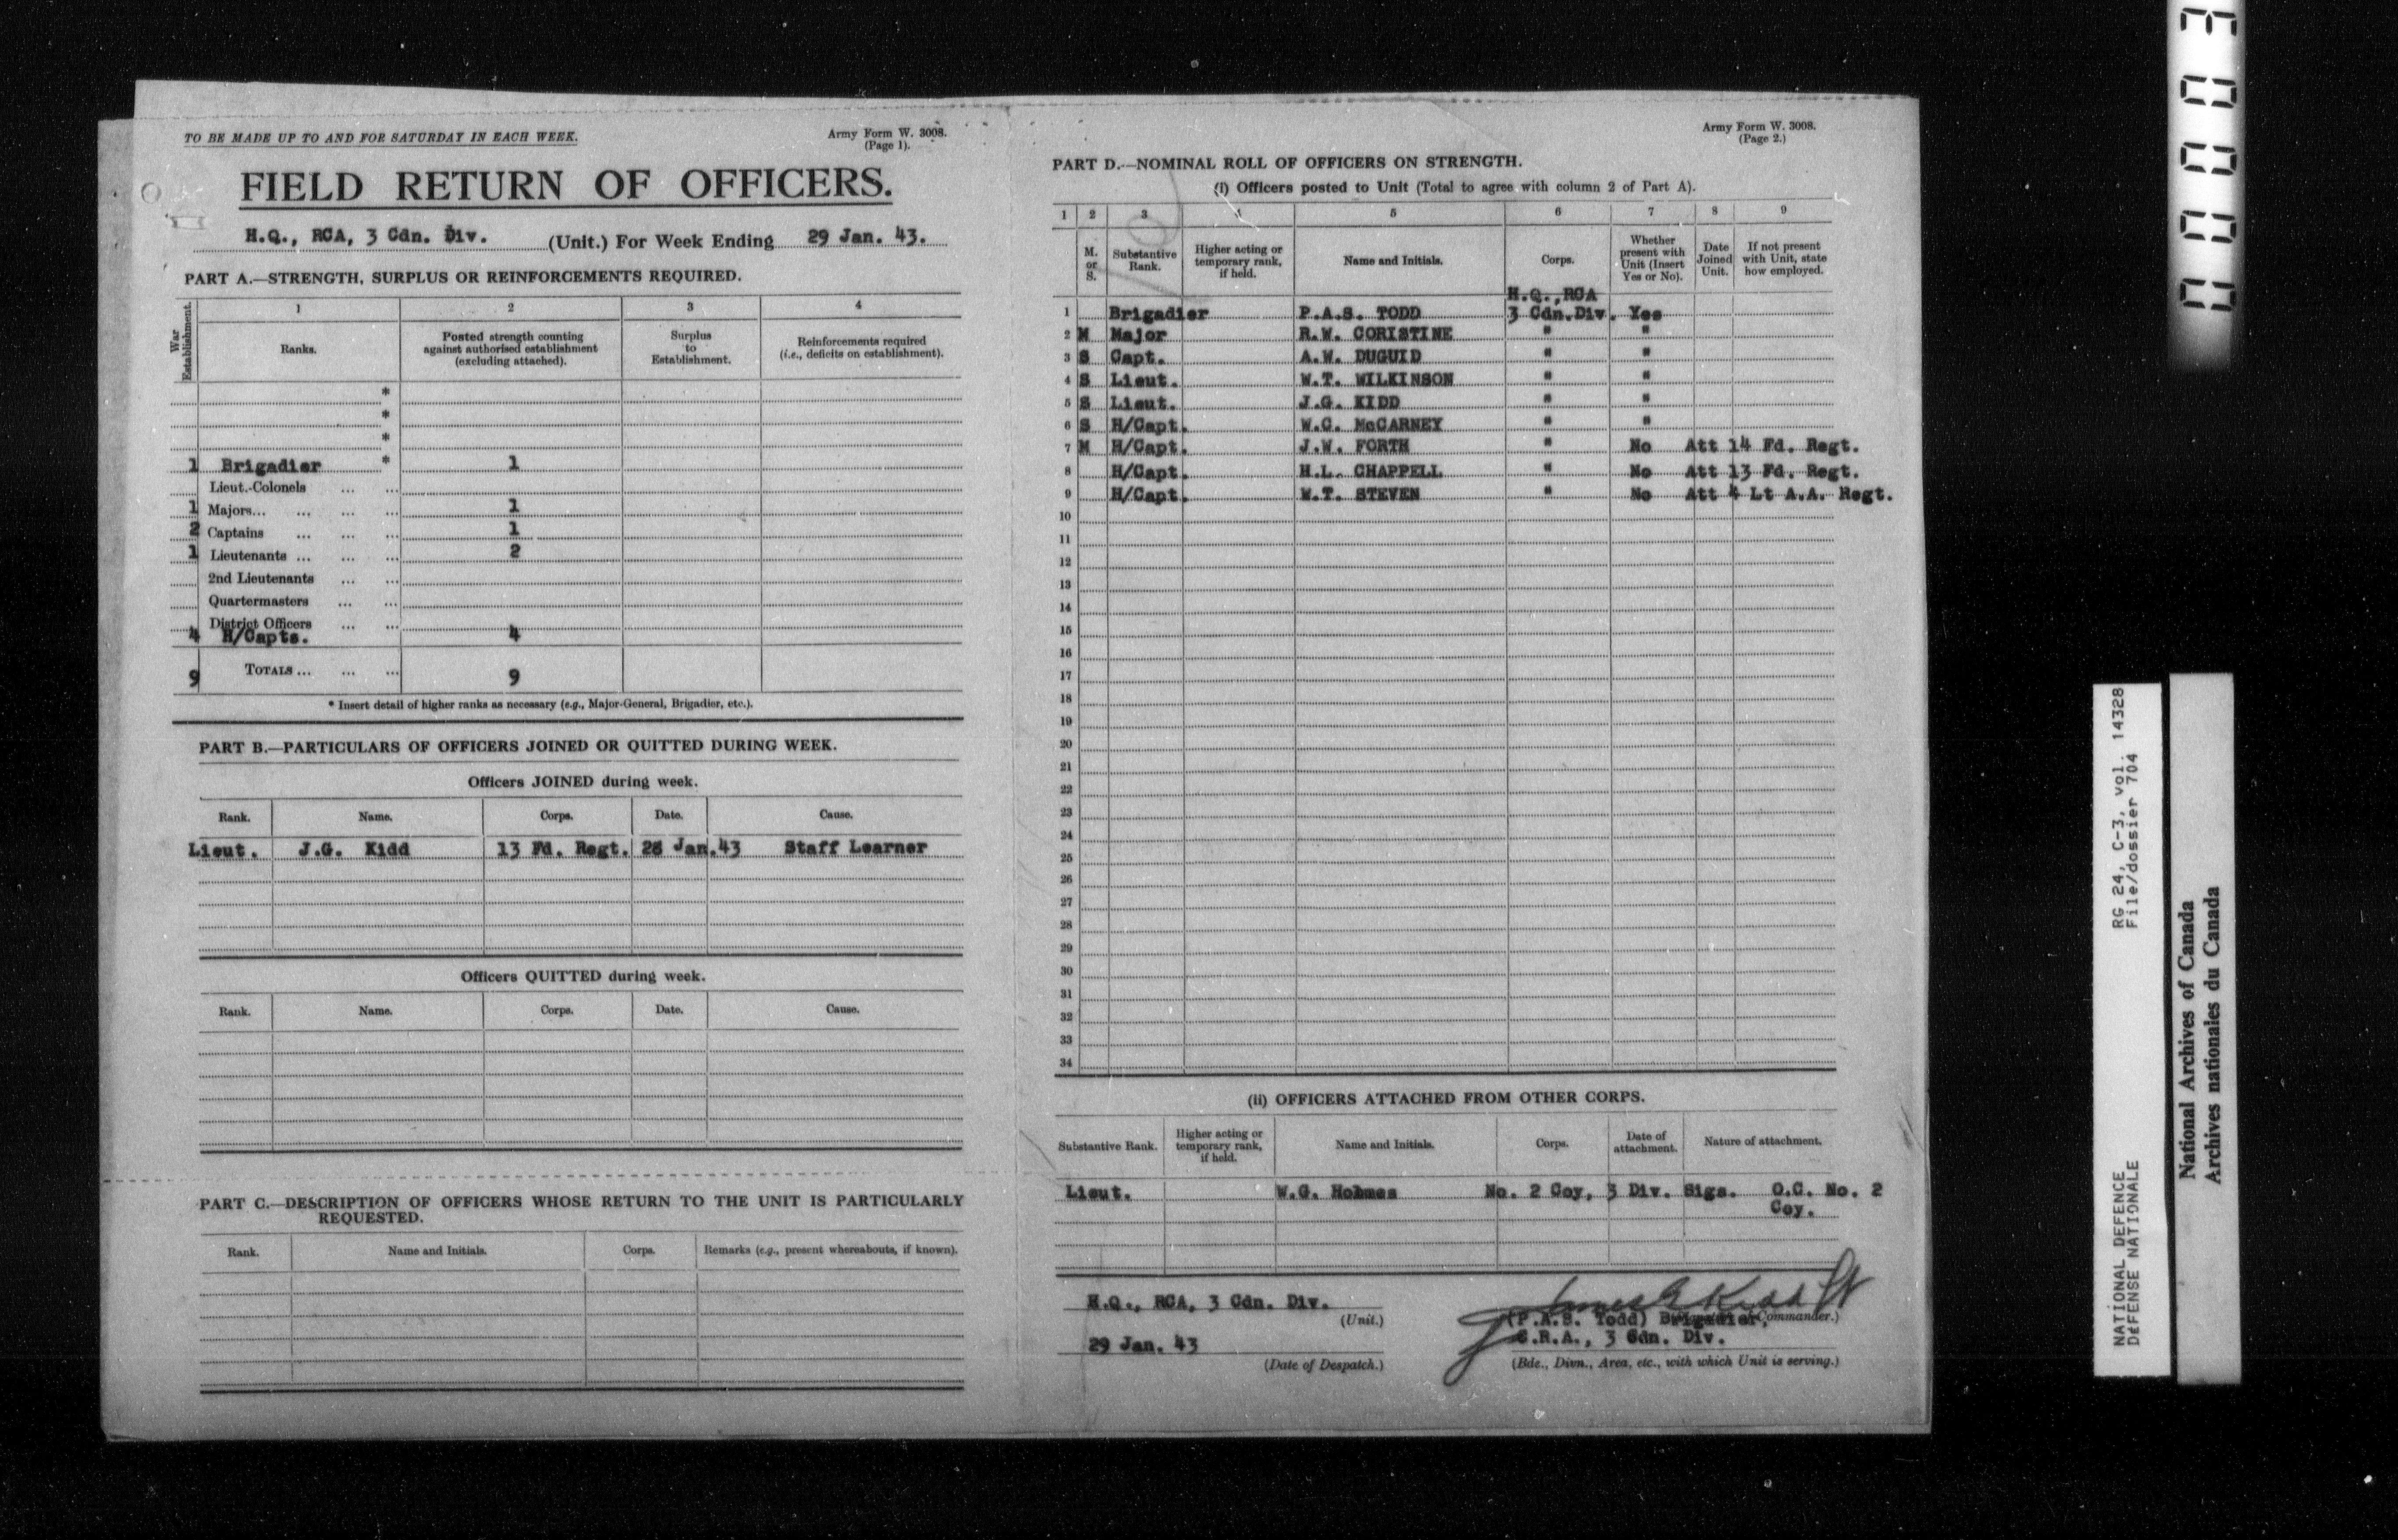 TO BE MADE UP TO AND FOR SATURDAY IN EACH WEEK.
Army Form W. 3008.
(Page 1).
FIELD RETURN OF OFFICERS.
H.Q., RCA, 3 Cdn. Div. (Unit.) For Week Ending 29 Jan. 43.
PART A.—STRENGTH, SURPLUS OR REINFORCEMENTS REQUIRED.
War Establishment.
1 2 3 4
Ranks. Posted strength counting against authorised establishment (excluding attached). Surplus to Establishment. Reinforcements required (i.e., deficits on establishment).
*
*
*
1 Brigadier * 1
Lieut.-Colonels ... ...
1 Majors... ... ... ... 1
2 Captains ... ... ... 1
1 Lieutenants ... ... ... 2
2nd Lieutenants ... ...
Quartermasters ... ...
District Officers ... ...
4 H/Capts. 4
9 TOTALS ... ... ... 9
* Insert detail of higher ranks as necessary (e.g., Major-General, Brigadier, etc.).
PART B.—PARTICULARS OF OFFICERS JOINED OR QUITTED DURING WEEK.
Officers JOINED during week.
Rank. Name. Corps. Date. Cause.
Lieut. J.G. Kidd 13 Fd. Regt. 28 Jan.43 Staff Learner
Officers QUITTED during week.
Rank. Name. Corps. Date. Cause.
PART C.—DESCRIPTION OF OFFICERS WHOSE RETURN TO THE UNIT IS PARTICULARLY
REQUESTED.
Rank. Name and Initials. Corps. Remarks (e.g., present whereabouts, if known).
Army Form W. 3008.
(Page 2.)
PART D.—NOMINAL ROLL OF OFFICERS ON STRENGTH.
(i) Officers posted to Unit (Total to agree with column 2 of Part A).
1 2 3 4 5 6 7 8 9
M. or S. Substantive Rank. Higher acting or temporary rank, if held. Name and Initials. Corps. Whether present with Unit (Insert Yes or No). Date Joined Unit. If not present with Unit, state how employed.
H.Q.,RCA
1 Brigadier P.A.S. TODD 3 Cdn.Div. Yes
2 M Major R.W. CORISTINE " "
3 S Capt. A.W. DUGUID " "
4 S Lieut. W.T. WILKINSON " "
5 S Lieut. J.G. KIDD " "
6 S H/Capt. W.C. McCARNEY " "
7 M H/Capt. J.W. FORTH " No Att 14 Fd. Regt.
8 H/Capt. H.L. CHAPPELL " No Att 13 Fd. Regt.
9 H/Capt. W.T. STEVEN " No Att 4 Lt A.A. Regt.
10
11
12
13
14
15
16
17
18
19
20
21
22
23
24
25
26
27
28
29
30
31
32
33
34
(ii) OFFICERS ATTACHED FROM OTHER CORPS.
Substantive Rank. Higher acting or temporary rank, if held. Name and Initials. Corps. Date of attachment. Nature of attachment.
Lieut. W.G. Holmes No. 2 Coy, 3 Div. Sigs. O.C. No. 2
Coy.
H.Q., RCA, 3 Cdn. Div.
(Unit.)
29 Jan. 43
(Date of Despatch.)
James G Kidd Lt
(P.A.S. Todd) Brigadier, Commander.)
C.R.A., 3 Cdn. Div.
(Bde., Divn., Area, etc., with which Unit is serving.)
0 0 0 0 3
NATIONAL DEFENCE RG 24, C-3, vol. 14328
DÉFENSE NATIONALE File/dossier 704
National Archives of Canada
Archives nationales du Canada